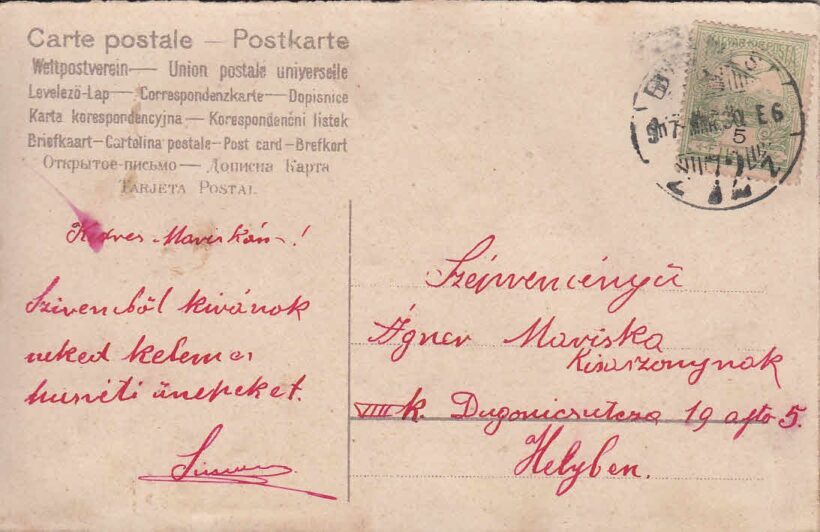 Carte postale — Postkarte
Weltpostverein — Union postale universelle
Levelező-Lap — Correspondenzkarte — Dopisnice
Karta korespondencyjna — Korespondenční lístek
Briefkaart — Cartolina postale — Post card — Brefkort
Открытое-письмо — Дописна Карта
TARJETA POSTAL
Kedves Mariskám!
Szivemből kivánok
neked kelemes
husvéti ünepeket.
Szépreményü
Ágner Mariska
Kisaszonynak
VIII k. Dugonicsutcza 19 ajto 5.
Helyben.